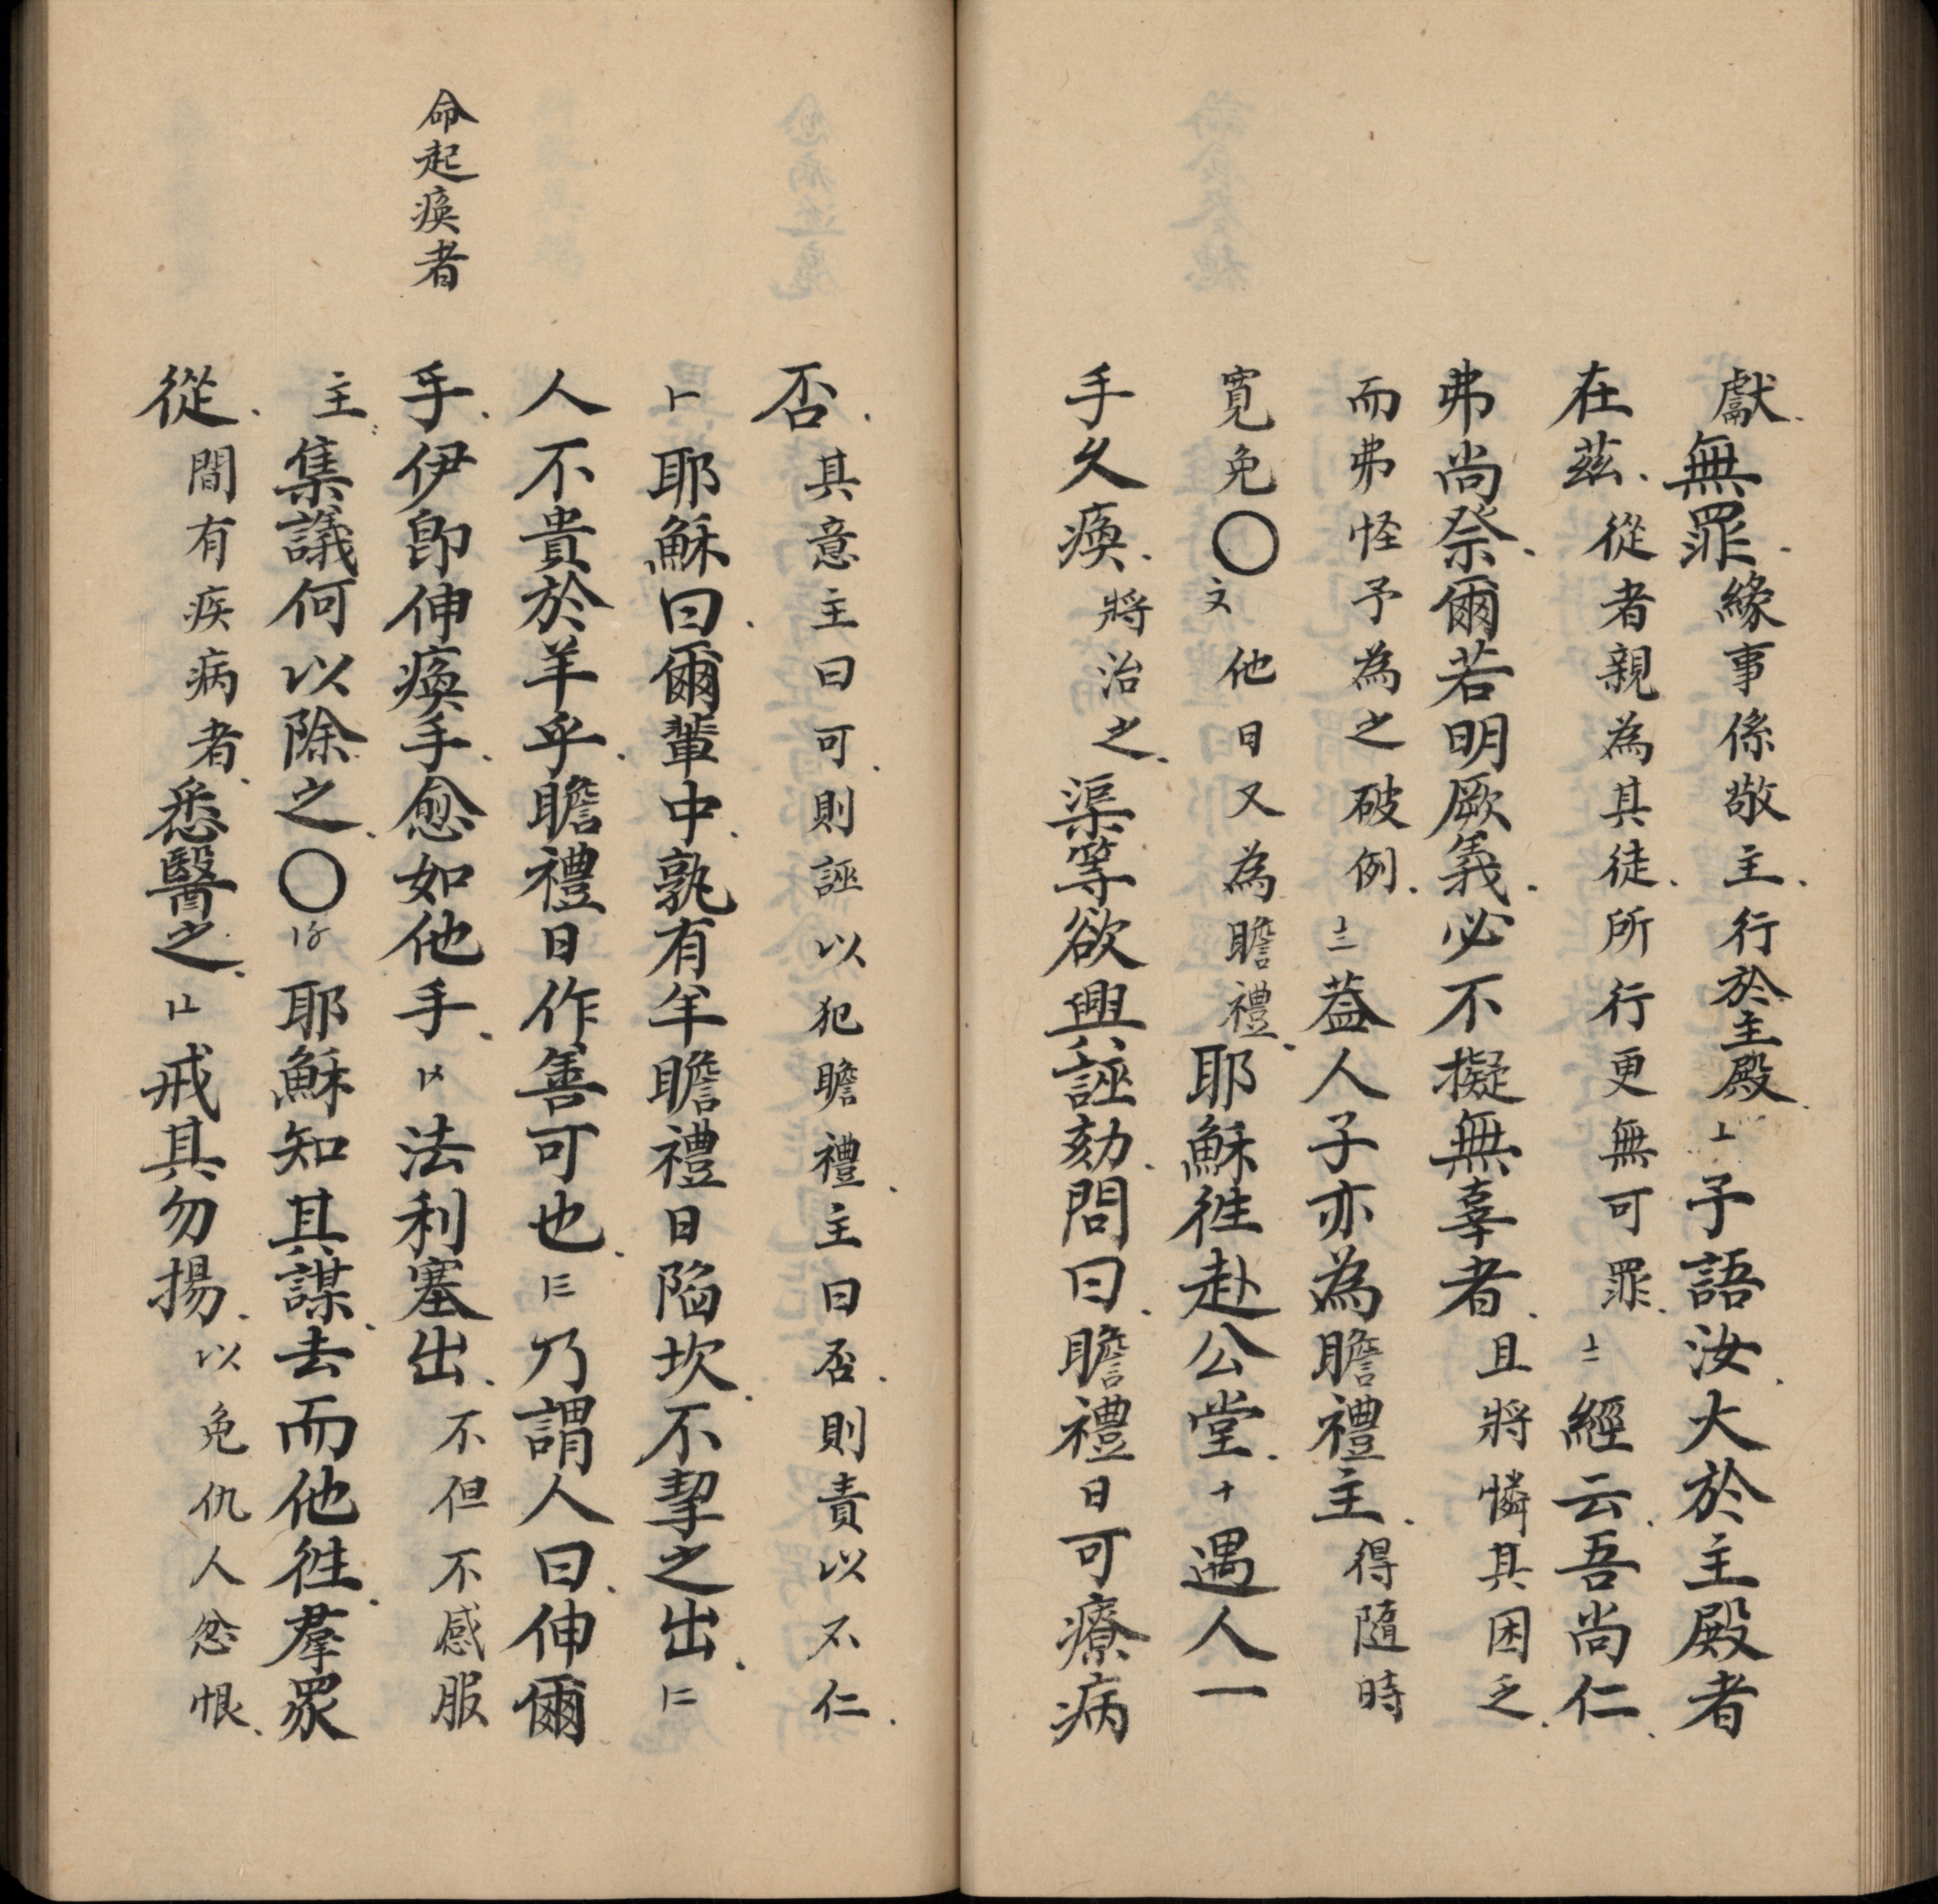 獻無罪緣事係敬主行於主殿〦予語汝大於主殿者
在茲從者親為其徒所行更無可罪〧經云吾尚仁
弗尚祭爾若明厥義必不擬無辜者且將憐其困乏
而弗怪予為之破例〨蓋人子亦為瞻禮主得隨時
寬免〇〩他日又為瞻禮耶穌徃赴公堂十遇人一
手久瘓將治之渠等欲興誣劾問曰瞻禮日可療病
否其意主曰可則誣以犯瞻禮主曰否則責以不仁
耶穌曰爾輩中孰有羊瞻禮日陷坎不挈之出
人不貴於羊乎瞻禮日作善可也乃謂人曰伸爾
命起瘓者
手伊卽伸瘓手愈如他手法利塞出不但不感服
主集議何以除之〇耶穌知其謀去而他徃羣眾
從間有疾病者悉醫之戒其勿揚以免仇人忿恨